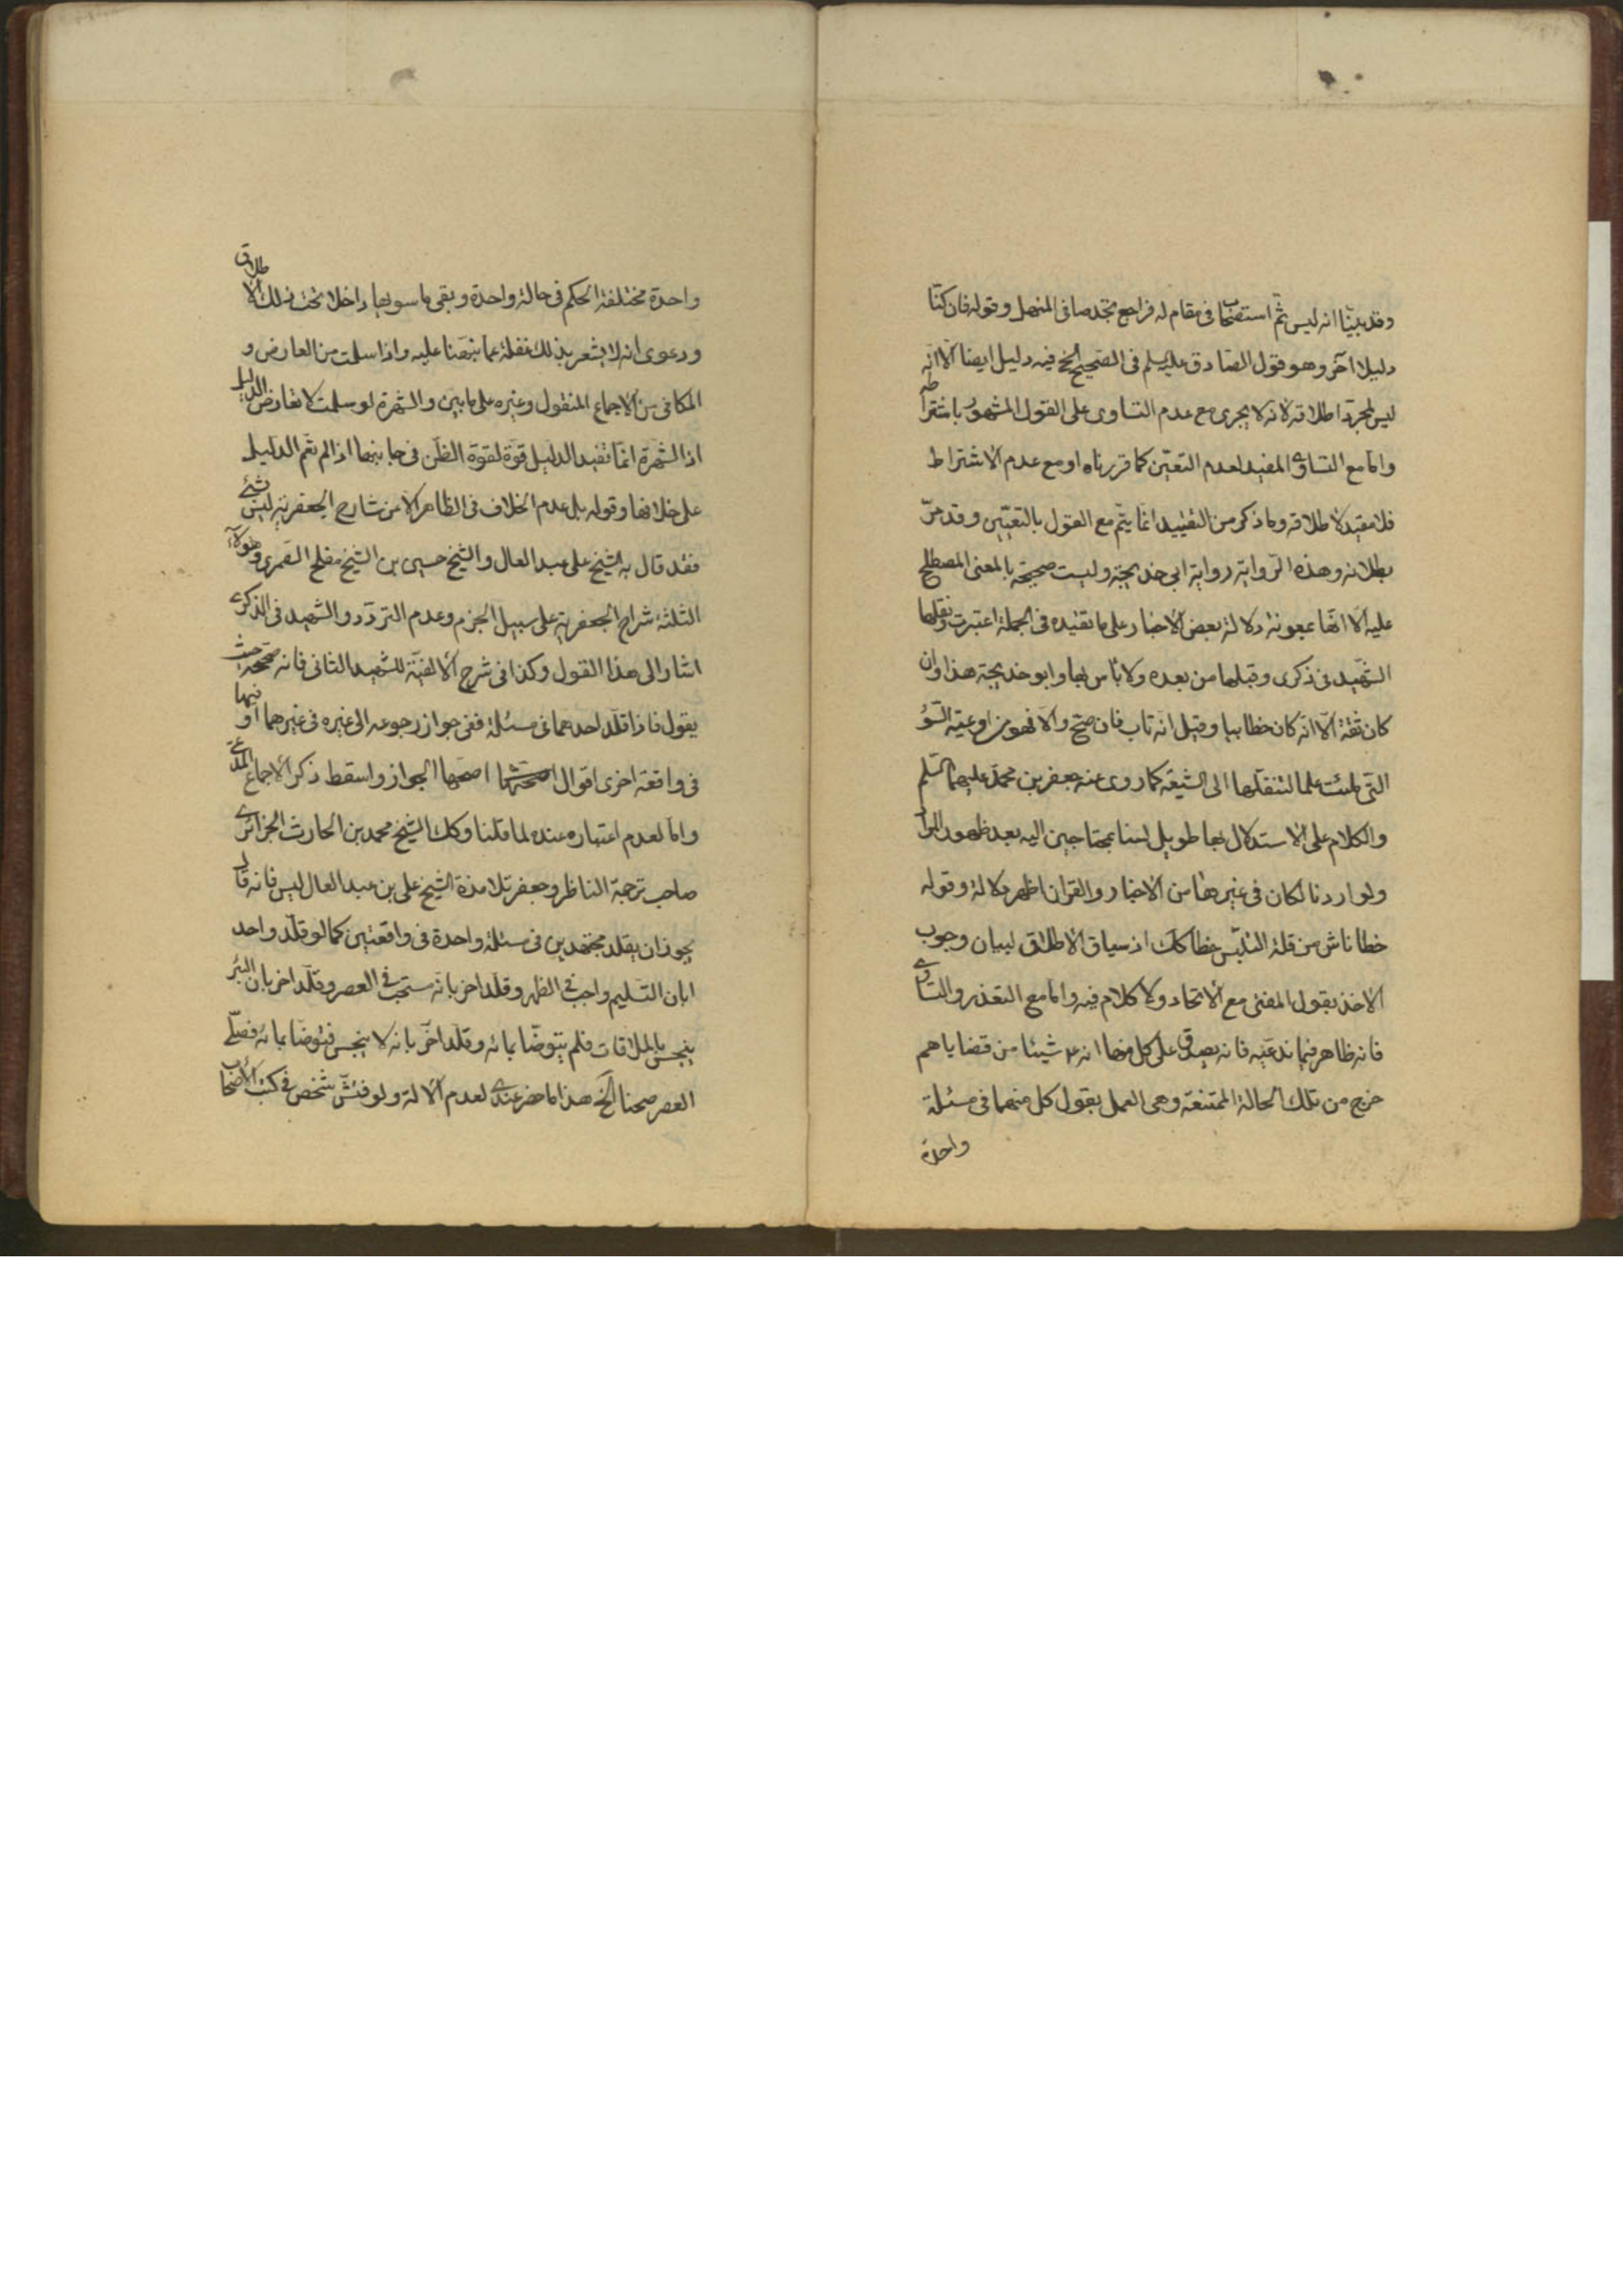 وقد بيّنا انه ليس ثم استصحابا في مقام له فراجع تجد صافي المنهل وقوله فان كنّا
دليلا آخر وهو قول الصادق عليه السلم في الصحيح الخ فيه دليل ايضا الّا انّه
ليس لمجرد اطلاقه لانه لا يجرى مع عدم التساوى على القول المشهور باشتراطه
وامّا مع التساوى المفيد لعدم التعيّن كما قررناه او مع عدم الاشتراط
فلا مقيد لاطلاقه وما ذكر من التقييد انما يتم مع القول بالتعيّين وقد مرّ
بطلانه وهذه الرواية رواية ابي خديجة وليست صحيحة بالمعنى المصطلح
عليه الا انّها بمعونة دلالة بعض الاخبار على ما تفيده في الجملة اعتبرت ونقلها
الشهيد في ذكرى وقبلها من بعده ولا باس بها وابو خديجة هذا وان
كان ثقة الّا انّه كان خطابيا وقيل انه تاب فان صحّ والا فهو من اوعية السّوء
التي ملئت علما لتنقلها الى الشيعة كما روى عنه جعفر بن محمد عليهما السلم
والكلام على الاستدلال بها طويل لسنا بمحتاجين اليه بعد ظهور المراد
ولو اردنا لكان في غيرها من الاخبار والقران اظهر دلالة وقوله
خطا ناش من قلة التلبّس خطا كك اذ سياق الاطلاق لبيان وجوب
الاخذ بقول المفتى مع الاتحاد ولا كلام فيه وامّا مع التعذر والتساوى
فانه ظاهر فيما ندعيه فانه يصدق على كل منهما انه شيئا من قضاياهم
خرج من تلك الحالة الممتنعة وهي العمل بقول كل منهما في مسئلة
واحدة
واحدة مختلفة الحكم في حالة واحدة وبقى ما سويها داخلا تحت ذلك الاطلاق
ودعوى انه لا يشعر بذلك غفلة عما نبّهنا عليه واذا سلمت من العارض و
المكافى من الاجماع المنقول وغيره على ما بين والشهرة لو سلمت لا تعارض الدليل
اذ الشهرة انّما تفيد الدليل قوة لقوة الظن في جانبها اذا لم يتم الدليل
على خلافها وقوله بل عدم الخلاف في الظاهر الا من شارح الجعفرية ليس بشئ
فقد قال به الشيخ على عبد العال والشيخ حسين بن الشيخ مفلح الصمرى وهؤلاء
الثلثة شراح الجعفرية على سبيل الجزم وعدم التردّد والشهيد في الذكرى
اشار الى هذا القول وكذا في شرح الالفيّة للشهيد الثاني فانه صححه حيث
يقول فاذا قلّد احدهما في مسئلة ففي جواز رجوعه الى غيره في غيرهما او فيها
في واقعة اخرى اقوال اصحها الجواز واسقط ذكر الاجماع المدّعى
وامّا لعدم اعتباره عنده لما قلنا وكك الشيخ محمد بن الحارث الجزائرى
صاحب ترجمة الناظر وجعفر تلامذة الشيخ على بن عبد العال ليس فانه قال
يجوز ان يقلد مجتهدين في مسئلة واحدة في واقعتين كما لو قلّد واحد
ابان التسليم واجب في الظهر وقلّد اخر بانّه مستحب في العصر وقلّد اخر بان البئر
ينجس بالملاقات فلم يتوضّا بمائه وقلّد اخر بانه لا ينجس فتوضا بمائه فصلّى
العصر صحتا الخ هذا ما حضر عندى لعدم الالة ولو فتّش شخص في كتب الاصحاب